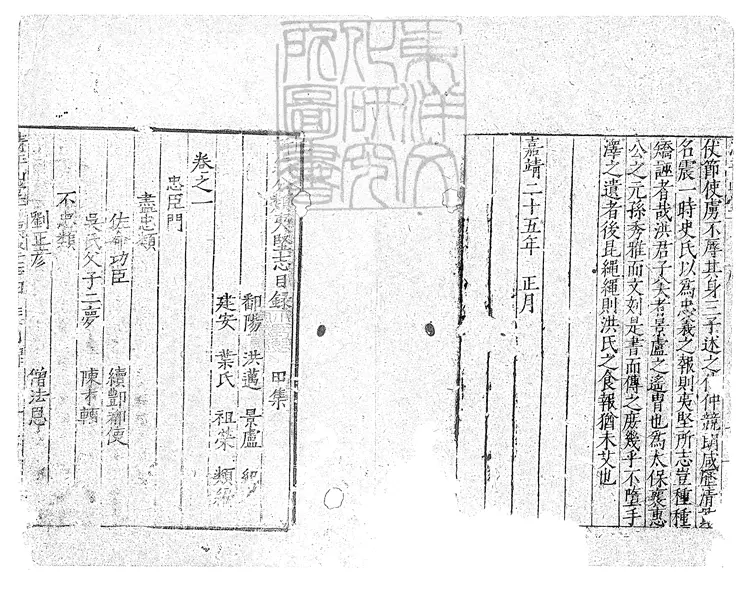 東洋文
化研究
所圖書
伏節使虜不辱其身三子述之仲競咸歷清
名震一時史氏以為忠義之報則夷堅所志豈種種
矯誣者哉洪君子美者景盧之遙冑也為太保襄惠
公之元孫秀雅而文刻是書而傳之庶幾乎不墮手
澤之遺者後昆繩繩則洪氏之食報猶未艾也
嘉靖二十五年 正月
分類夷堅志目錄 甲集
鄱陽 洪邁 景盧 紀
建安 葉氏 祖榮 類編
卷之一
忠臣門
盡忠類
佐命功臣 續酆都使
吳氏父子二夢 陳才輔
不忠類
劉正彥 僧法恩